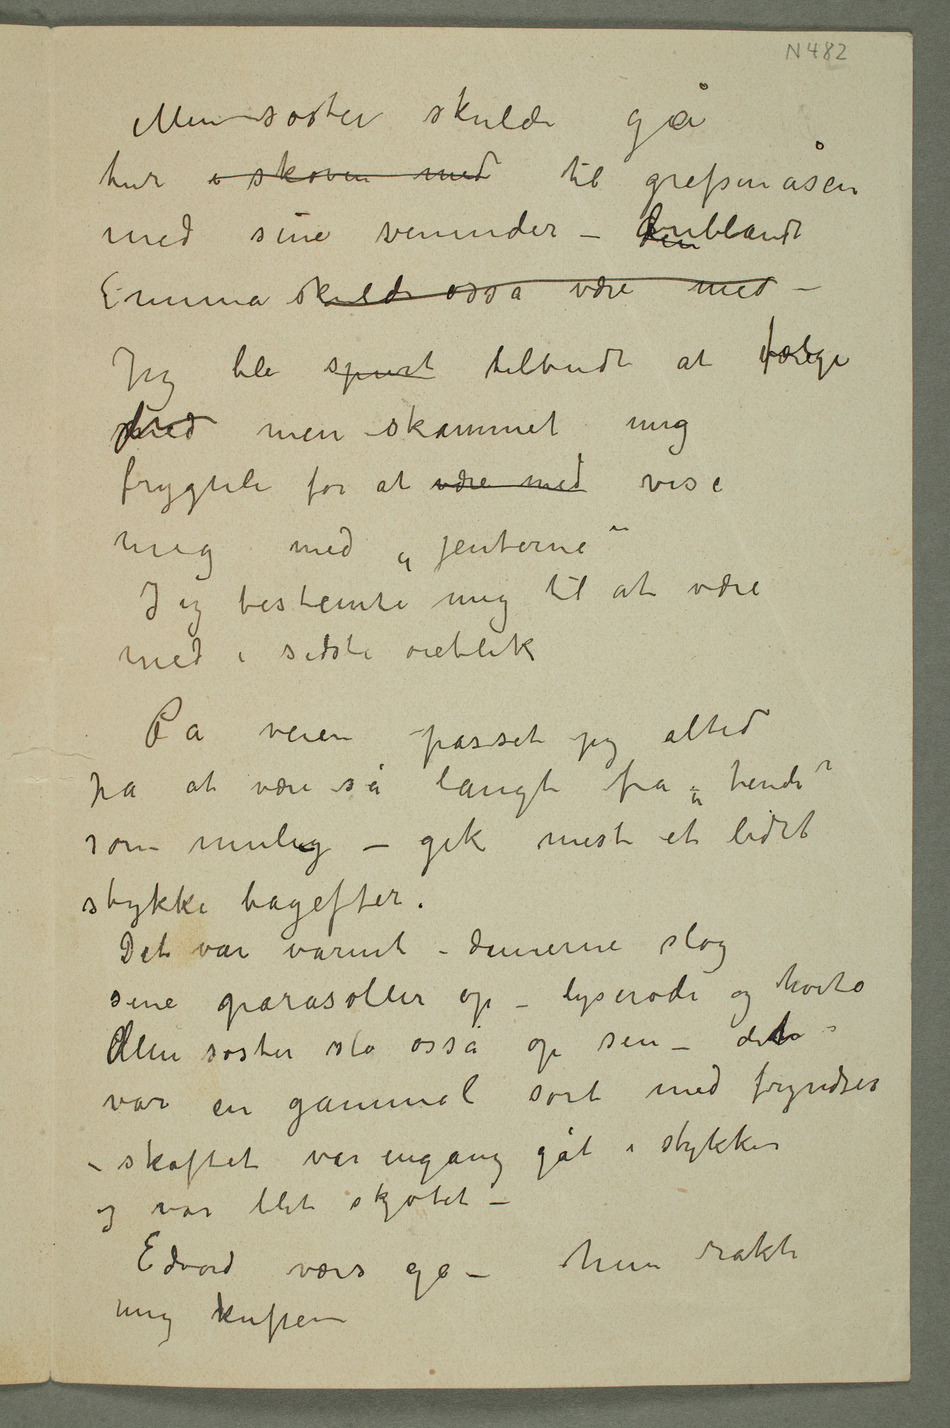 N 482
Min søster skulde gå
tur i skoven med til grefsenåsen
med sine veninder – iblandt
Emma skulde osså være med –
Jeg ble spurt tilbudt at følge
med men skammet mig
frygteli for at være med vise
mig med „jenterne“
Jeg bestemte mig til at være
med i sidste øieblik
På veien passet jeg altid
på at være så langt fra „hende“
som mulig – gik mest et lidet
stykke bagefter.
Det var varmt – damerne slog
sine parasoller op – lyserøde og hvite
Min søster slo osså op sin – det
var en gammel sort med fryndser
– skaftet var engang gåt i stykker
og var blit skjøtet –
Edvard værs go – hun rakte
mig kurven